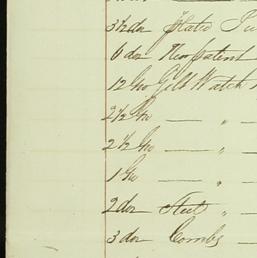 3½ doz Plated
6 doz New patent
12 Gro Gilt Watch
2½ Gro — "
2½ Gro — "
1 Gro — "
2 doz Steel "
3 doz Combs —